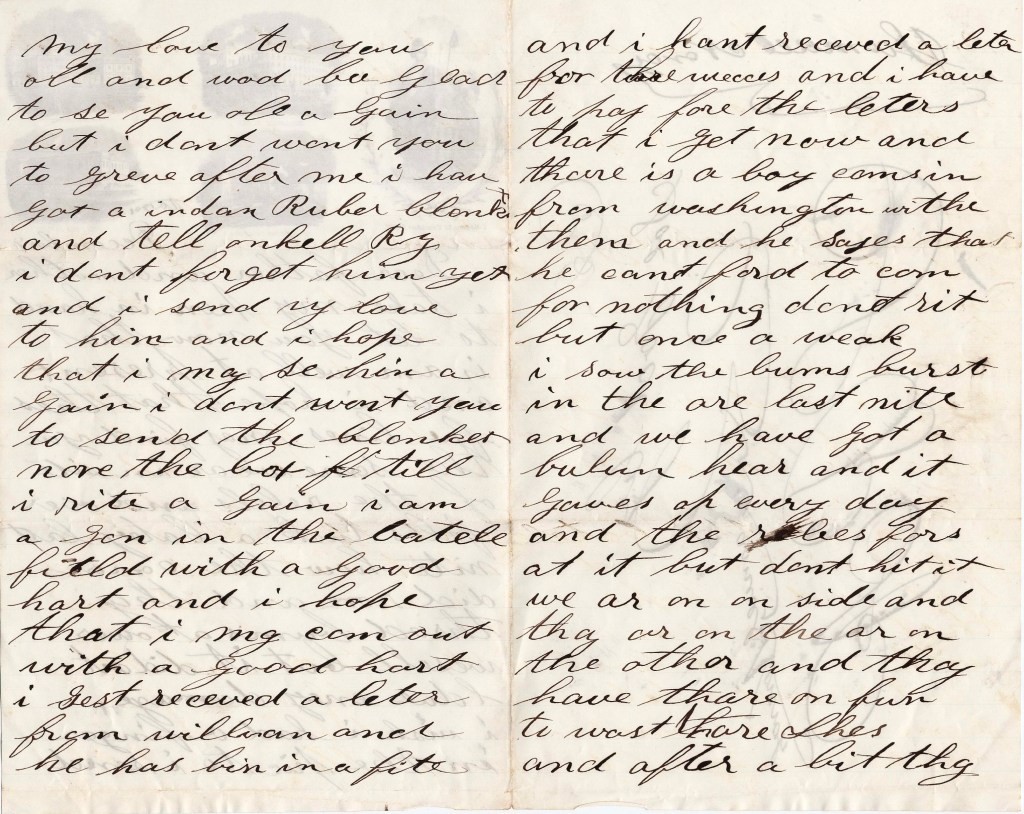 my love to you
all and wod bee Glead
to se you all a Gain
but i dont wont you
to greve after me i hav
got a indan Ruber blonket
and tell onkell Ry
i dont for get him yet
and i send my love
to him and i hope
that i may se him a
Gain i dont wont you
to send the blonket
nore the box till
i rite a Gain i am
a Gon in the batele
feild with a Good
hart and i hope
that i my com out
with a Good hart
i gest receved a leter
from william and
he has bin in a fite
and i hant receved a leter
for three weeces and i have
to pay fore the leters
that i get now and
thare is a boy comsin
from washington withe
them and he sayes that
he cant ford to com
for nothing dont rit
but once a weak
i sow the bums burst
in the are last nite
and we have Got a
bulun hear and it
Gowes op every day
and the rebes fors
at it but dont hit it
we ar on on side and
thay ar on the ar on
the other and thay
have thare on fun
to wast thare
and after a bit thy